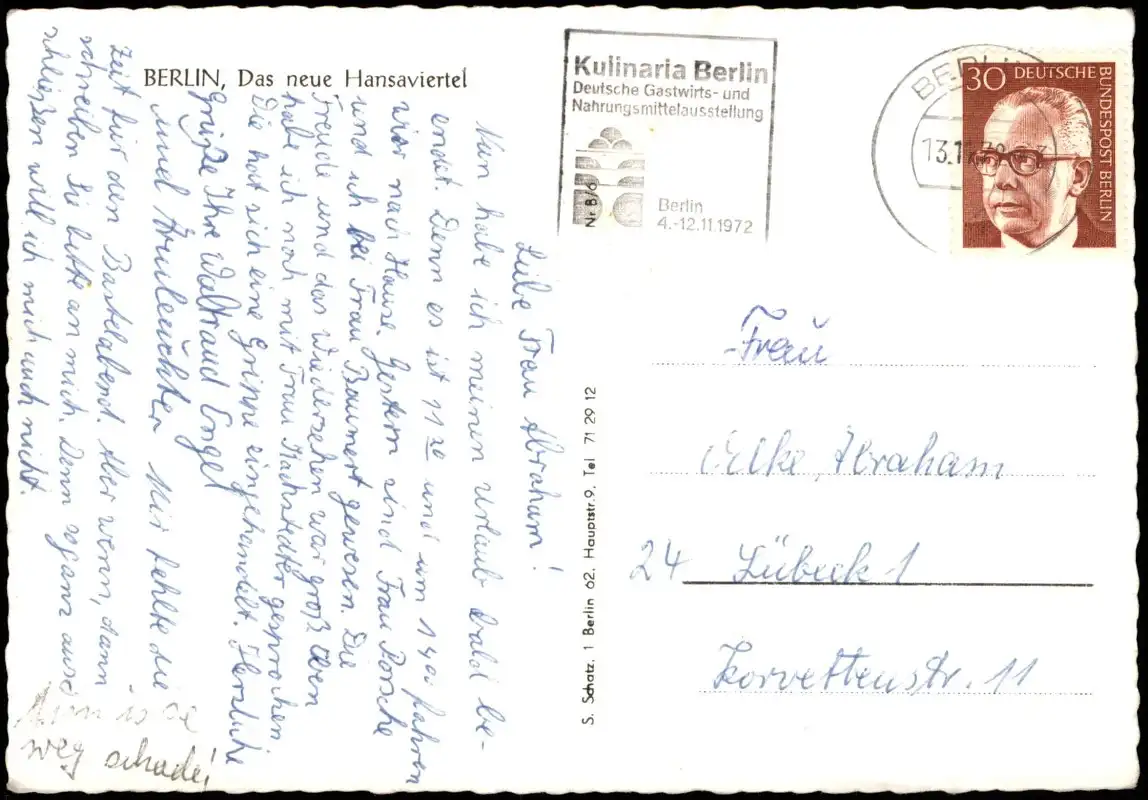 BERLIN, Das neue Hansaviertel
Kulinaria Berlin
Deutsche Gastwirts- und
Nahrungsmittelausstellung
Nr 8/6
Berlin
4.-12.11.1972
BERLIN
13.11.72
30 DEUTSCHE
BUNDESPOST BERLIN
Liebe Frau Abraham!
Nun habe ich meinen Urlaub bald be-
endet. Denn es ist 11 und um 1 fahren
wir nach Hause. Gestern sind Frau Porsche
und ich bei Frau Baumert gewesen. Die
Freude und das Wiedersehen war groß. Eben
habe ich noch mit Frau gesprochen
Die hat sich eine Grippe eingehandelt. Herzliche
Grüße Ihre Waltraud Engel
Mir fehlte die
Zeit für den Bastelabend. Aber wenn, dann
schreiben Sie bitte an mich. Denn so ganz aus-
schließen will ich mich auch nicht.
Nun is se
weg schade!
S. Schatz. 1 Berlin 62. Hauptstr. 9. Tel 71 29 12
Frau
Elke, Abraham
24 Lübeck-1
Korvettenstr. 11